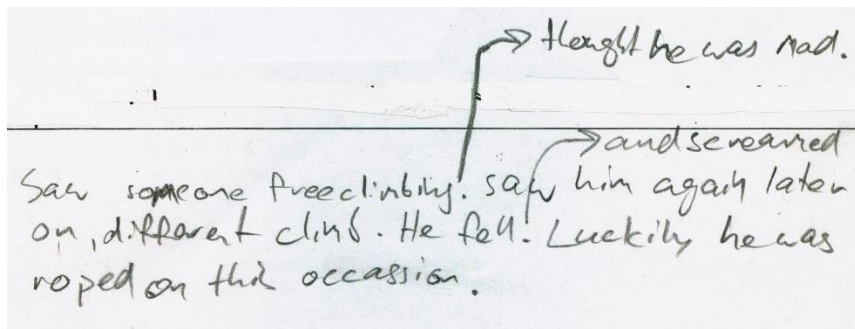 thought he was mad.
and screamed
Saw someone freeclimbing. saw him again later
on, different climb. He fell. Luckily he was
roped on this occassion.